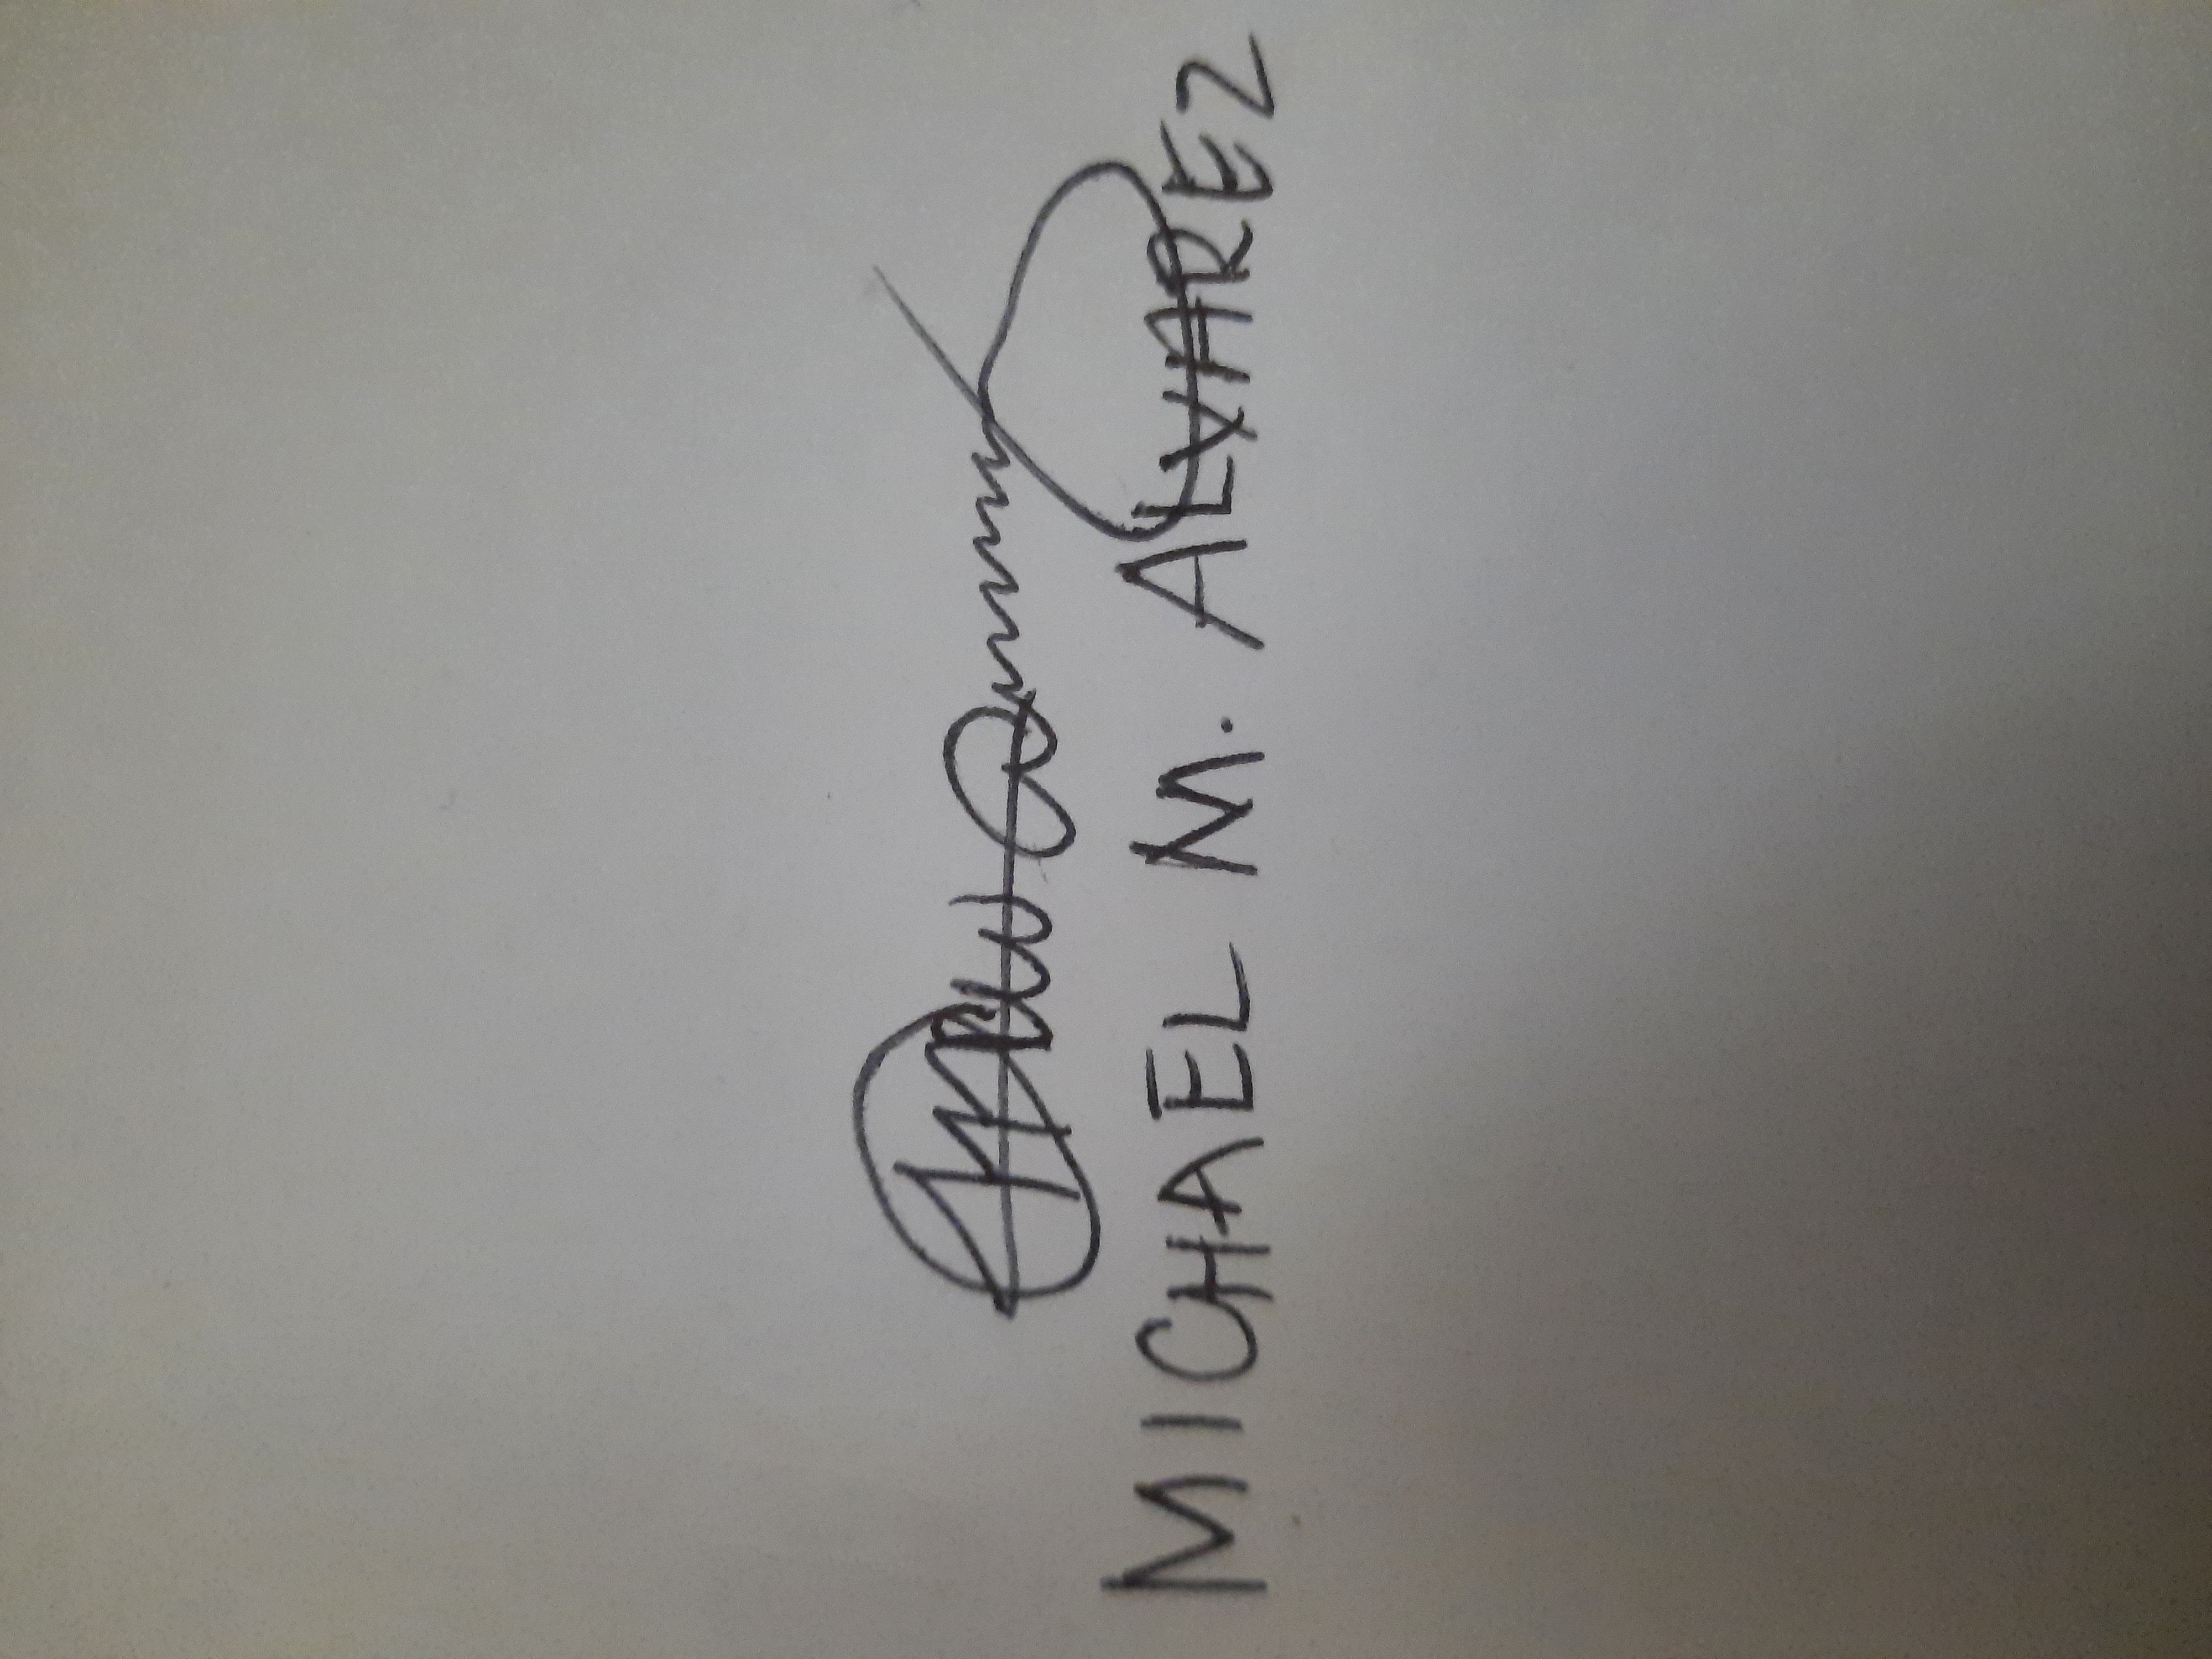 MICHAEL M. ALVAREZ